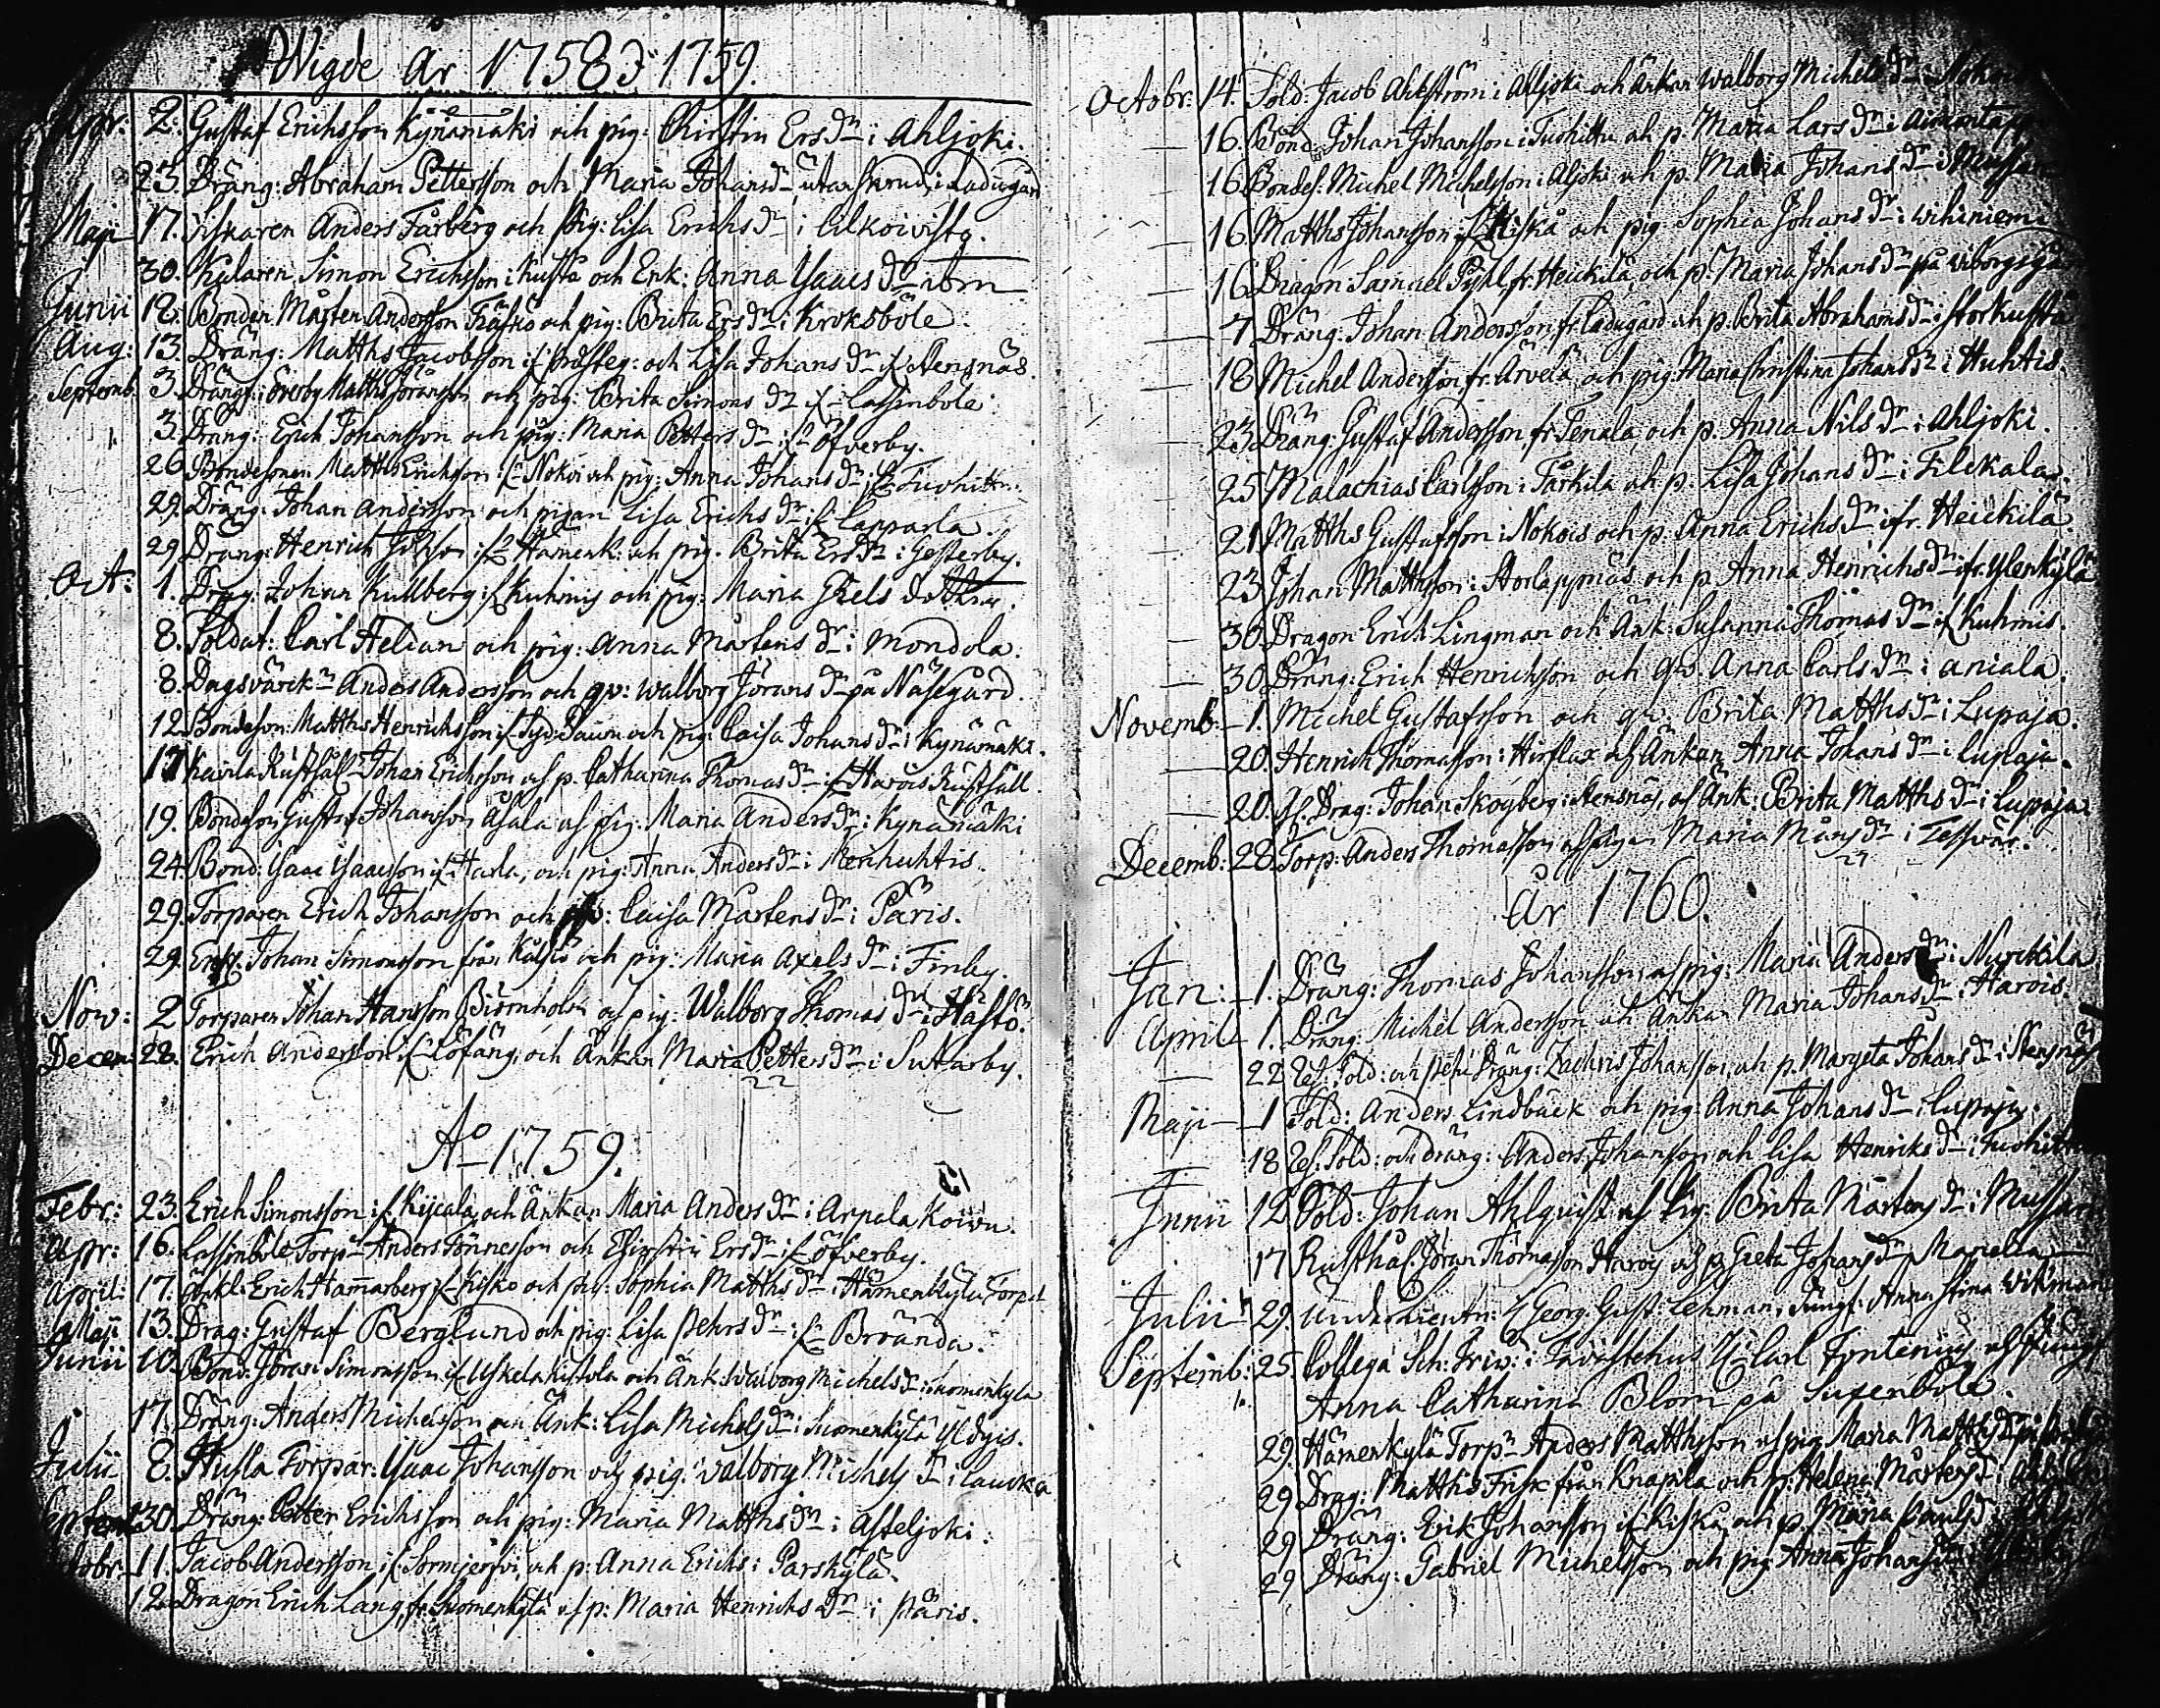 Wigde År 1758 & 1759.
Apr: 2. Gustaf Erichsson Kynämäki och pig: Christin Ersdr i Ahljoki.
23. Dräng: Abraham Pettersson och Maria Johansdr i Ladugård
Maji 17. Fiskaren Anders Färberg och Pig: Lisa Erichsdr i Alkoivisto.
30. Kularen Simon Erichsson i Kusta och Enk: Anna Isaacsdr ibm
Junii 18. Bonden Mårten Andersson Träskö och pig: Brita Ersdr i Kroksböle
Aug: 13. Dräng: Matths Jacobsson if Prästeg: och Lisa Johansdr if Stensnäs.
Septemb. 3. Drängs: i Öfverby Matths Jöransson och pig: Brita Simonsdr if Lassinböle
3. Dräng: Erich Johansson och pig: Maria Pettersdr if Öfverby.
26. Bondesonen Matths Erichsson if Nokoi och pig: Anna Johansdr if Tuohittu
29. Dräng: Johan Andersson och pigan Lisa Erichsdr if Lapparla.
29. Dräng: Henrich if Hämenk: och pig. Brita Ersdr i Gesterby.
Oct: 1. Drag: Johan Kullberg if Kuhmis och pig: Maria
8. Soldat: Carl Helian och pig: Anna Mårtensdr i Mondola.
8. Dagsvärckn Anders Andersson och qv: Walborg Jöransdr på Näsegård.
12. Bondeson: Matths Henrichsson if Päivi och pig: Caisa Johansdr i Kynämäki.
17. Kaivila Rusthåll Johan Erichsson och p. Catharina Thomasdr if Harois Rusthåll.
19. Bondeson Gustaf Johansson Asala och pig: Maria Andersdr i Kynämäki
24. Bond: Isaac Isaacsson if Harla, och pig: Anna Andersdr i Merihuhtis.
29. Torparen Erich Johansson och Caisa Mårtensdr i Päris.
29. Enkl: Johan Simonsson från Kälkiö och pig: Maria Axelsdr i Finby.
Now: 2 Torparen Johan Hansson Biörnholm och pig: Walborg Thomasdr i Hästö.
Decem: 28. Erich Andersson if Löfäng och Änkan Maria Pettersdr i Sutarby.
Ao 1759.
Febr: 23. Erich Simonsson if Kijcala och Änkan Maria Andersdr i Arpalakoivu.
Apr: 16. Lassinböle Torpr Anders Tönnesson och Christin Ersdr if Öfverby.
April: 17. Änkl: Erich Hammarberg if Kisko och pig: Sophia Matthsdr i Hämenkylä Torp
Maji 13. Drag: Gustaf Berglund och pig: Lisa Pehrsdr if Broända.
Junii 10. Bond: Jöran Simonsson if Uskelakistola och Änk: Walborg Michelsdr i Suomenkylä
17. Dräng: Anders Michelsson och Änk: Lisa Michelsdr i Suomenkylä Yldgis.
Julii 8. Husla Torpar: Isaac Johansson och pig: Walborg Michelsdr i Laucka
Septemb 30. Dräng: Petter Erichsson och pig: Maria Matthsdr i Asteljoki.
Octobr: 11. Jacob Andersson if Sormjerfvi, och p: Anna Erichs: Parskylä.
12. Dragon Erich Lang, fr. Suomenkylä och p: Maria Henrichsdr i Päris.
Octobr: 14. Sold: Jacob Ahlström i Ahljoki och Änkan Walborg Michelsdr i Noko
16. Bond: Johan Johansson i Tuohittu och p. Maria Larsdr i
16. Bondes: Michel Michelsson i Aljoki och p. Maria Johansdr i
16. Matths Johansson if Kiska och pig Sophia Johansdr i Wihiniemi
16. Dragon Samuel Pihl fr. Heickilä och p. Maria Johansdr på Wiborgsgå
7. Dräng: Johan Andersson fr. Ladugård och p. Brita Abrahamsdr i Storkusta
18 Michel Andersson fr. Ärvelä och pig: Maria Christina Johansdr i Huhtis.
23. Dräng: Gustaf Andersson fr. Tenala och p: Anna Nilsdr i Ahljoki.
25 Malachias Carlsson i Tärkilä och p: Lisa Johansdr i Filekala.
21. Matths Gustafsson i Nokois och p. Anna Erichsdr ifr. Heickilä.
23. Johan Matthsson i Storlappnäs och p. Anna Henrichsdr ifr. Ylenkylä
30. Dragon Erich Lingman och Änk: Susanna Thomasdr if Kuhmis.
30. Dräng: Erich Henrichsson och qv. Anna Carlsdr i Aniala.
Novemb: 1. Michel Gustafsson och qv. Brita Matthsdr i Lupaja.
20. Henrich Thomasson i Hirslax och Änkan Anna Johansdr i Lupaja.
20. Af. Drag: Johan Skogberg i Stensnäs, och Änk: Brita Matthsdr i Lupaja
Decemb: 28. Torp: Anders Thomasson och pigan Maria Mårsdr i Tessvär.
År 1760.
Jan: 1. Dräng: Thomas Johansson och pig: Maria Andersdr i Nurckila
April 1. Dräng: Michel Andersson och Änkan Maria Johansdr i Harois.
22 Ref: Sold: och Dräng: Zachris Johansson och p. Margeta Johansdr i Stensnäs
Maji 1 Sold: Anders Lindbäck och pig: Anna Johansdr i Lupaja.
18 Ref. Sold: och dräng: Anders Johansson och Lisa Henriksdr i Tuohittu
Junii 12. Sold: Johan Ahlquist och Pig: Brita Mårtensdr i Mussari
17 Rusthål. Jöran Thomasson Harois och p. Greta Johansdr Mariella
Julii 29. Underlieutn: H Georg Gust: Lehman, Jungf: Anna Stina Wikman
Septemb: 25. Collega Sch: Triv: i Tavastehus H Carl Fonteniis och Jungf
Anna Catharina Blom på Suxenböle.
29. Hämenkylä Torpr Anders Matthsson och pig Maria Matthsdr
29. Drag: Matths Frisk från Knapila och p. Helena Mårtensdr i
29 Dräng: Erik Johansson if Kiska och p. Maria Paulsdr i
29 Dräng: Gabriel Michelsson och pig: Anna Johansdr